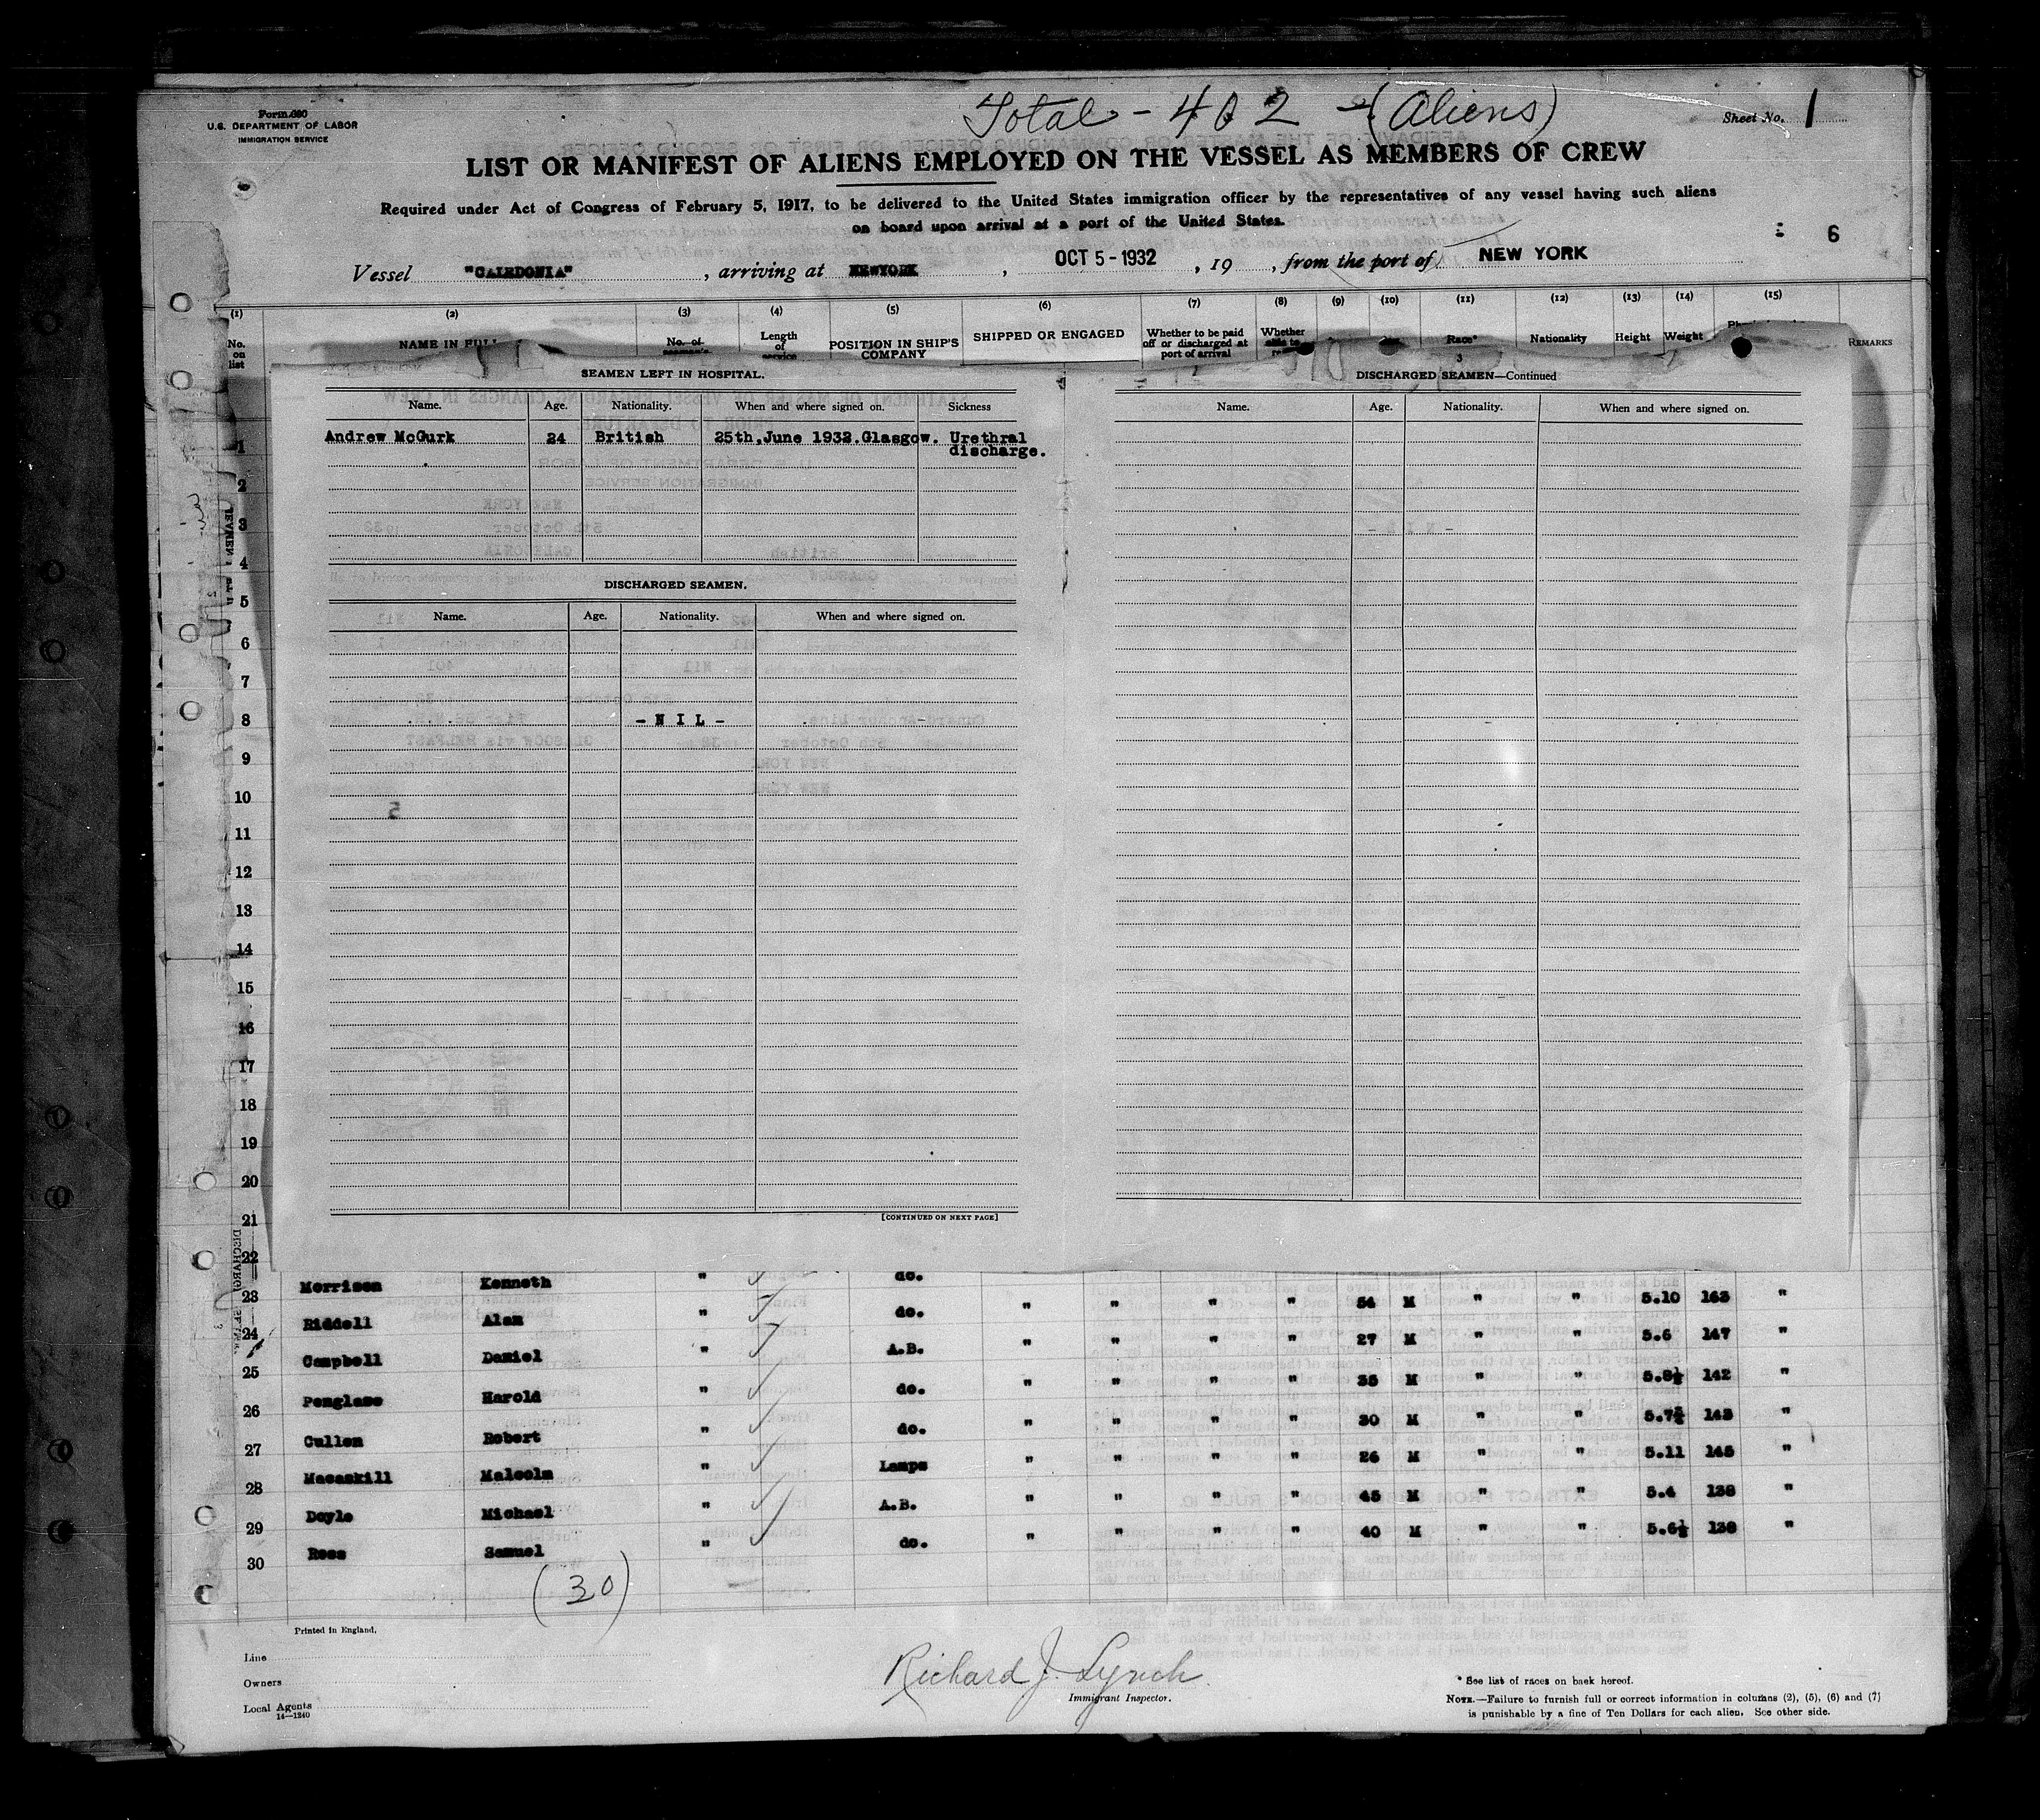 Form 680
U.S. DEPARTMENT OF LABOR
IMMIGRATION SERVICE
Total - 402 - (Aliens)
Sheet No. 1
LIST OR MANIFEST OF ALIENS EMPLOYED ON THE VESSEL AS MEMBERS OF CREW
Required under Act of Congress of February 5, 1917, to be delivered to the United States immigration officer by the representatives of any vessel having such aliens
on board upon arrival at a port of the United States.
6
Vessel "CALEDONIA", arriving at NEWYORK, OCT 5 - 1932, 19, from the port of NEW YORK
(1) (2) (3) (4) (5) (6) (7) (8) (9) (10) (11) (12) (13) (14) (15)
No. on list NAME IN FULL No. of Length of service POSITION IN SHIP'S COMPANY SHIPPED OR ENGAGED Whether to be paid off or discharged at port of arrival Whether able to Race* Nationality Height Weight REMARKS
SEAMEN LEFT IN HOSPITAL.
Name. Age. Nationality. When and where signed on. Sickness
Andrew McGurk 24 British 25th, June 1932. Glasgow. Urethral
discharge.
DISCHARGED SEAMEN.
Name. Age. Nationality. When and where signed on.
- N I L -
[CONTINUED ON NEXT PAGE]
DISCHARGED SEAMEN—Continued
Name. Age. Nationality. When and where signed on.
1
2
3
4
5
6
7
8
9
10
11
12
13
14
15
16
17
18
19
20
21
22
23 Morrison Kenneth " do.
24 Riddell Alan " do. " " " " 54 M " " 5.10 163 "
25 Campbell Daniel " A.B. " " " " 27 M " " 5.6 147 "
26 Penglase Harold " do. " " " " 35 M " " 5.8½ 142 "
27 Cullen Robert " do. " " " " 30 M " " 5.7¾ 143 "
28 Macaskill Malcolm " Lamps " " " " 26 M " " 5.11 145 "
29 Doyle Michael " A.B. " " " " 45 M " " 5.4 138 "
30 Ross Samuel " do. " " " " 40 M " " 5.6½ 138 "
(30)
Printed in England.
Line
Owners
Local Agents
14—1240
Richard J. Lynch
Immigrant Inspector.
* See list of races on back hereof.
NOTE.—Failure to furnish full or correct information in columns (2), (5), (6) and (7)
is punishable by a fine of Ten Dollars for each alien. See other side.